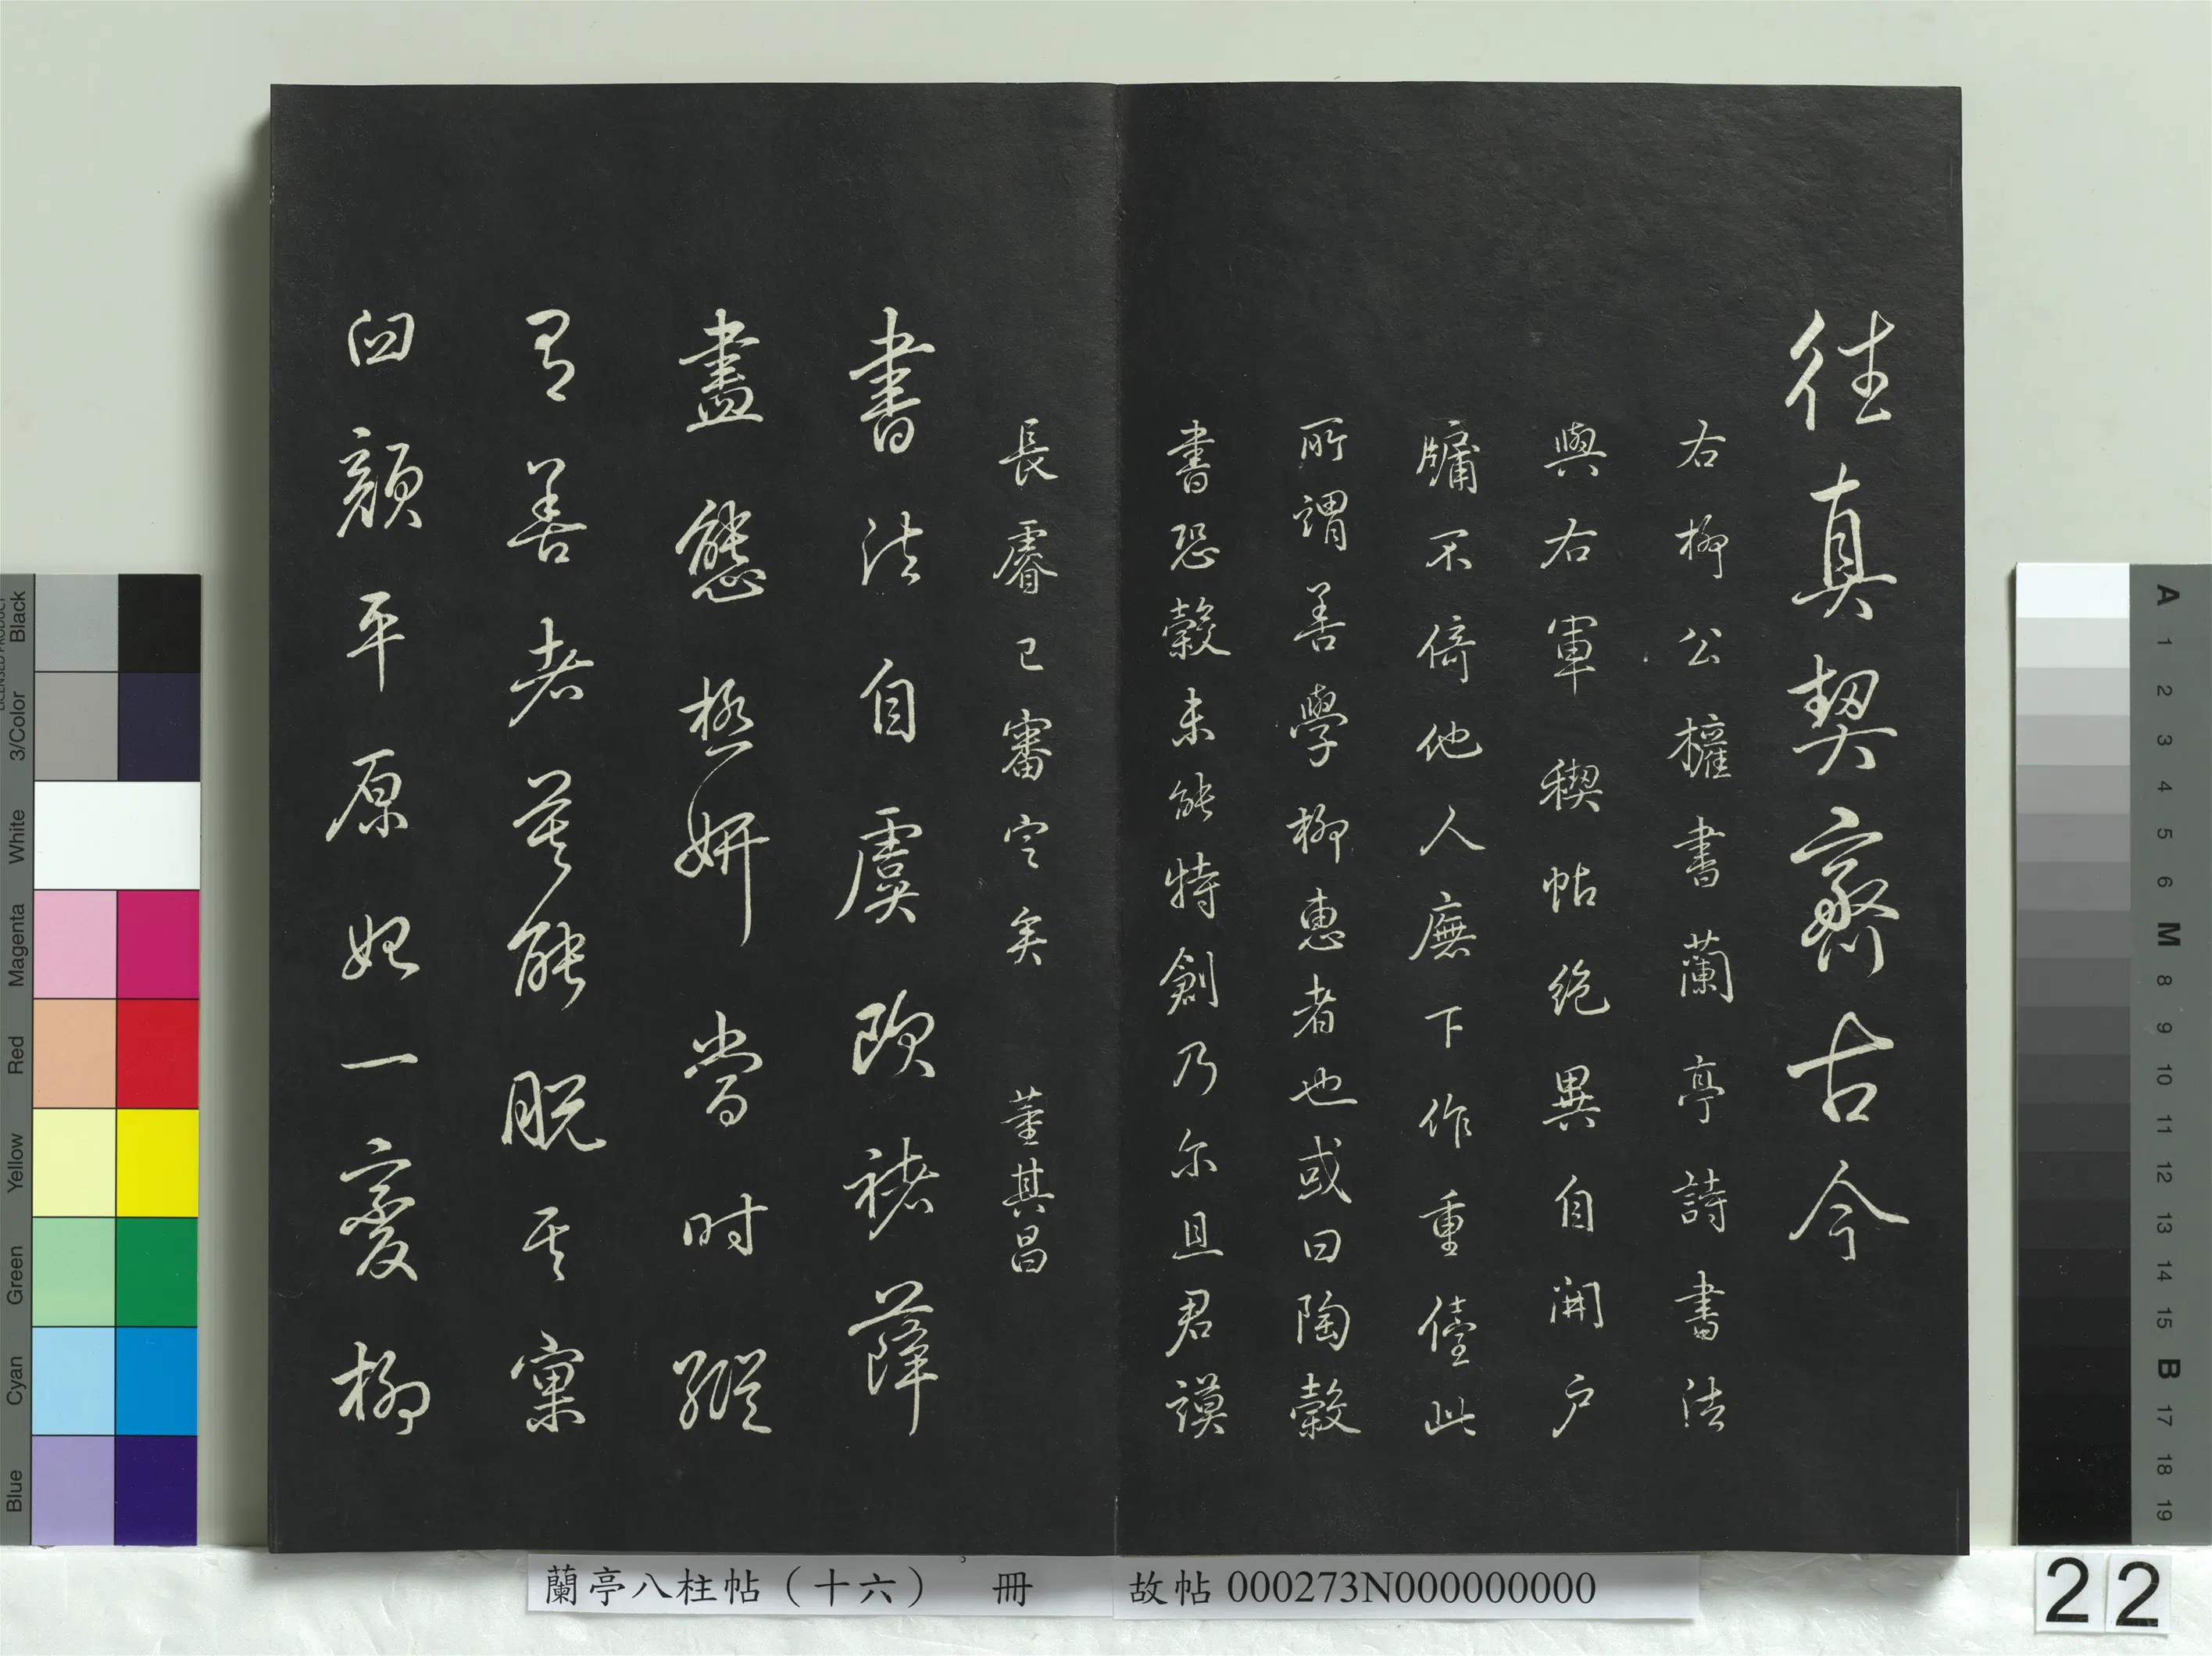 往真契齋古今
右柳公權書蘭亭詩書法
與右軍稧帖絕異自開戶
牖不倚他人廡下作重儓此
所謂善學柳惠者也或曰陶穀
書恐穀未能特創乃尔且君謨
長睿已審定矣 董其昌
書法自虞欧褚薛
盡態極妍當時縱
有善者莫能脫其窠
臼顏平原始一變柳
蘭亭八柱帖（十六） 冊 故帖000273N000000000
22
Black
3/Color
White
Magenta
Red
Yellow
Green
Cyan
Blue
A
1
2
3
4
5
6
M
8
9
10
11
12
13
14
15
B
17
18
19